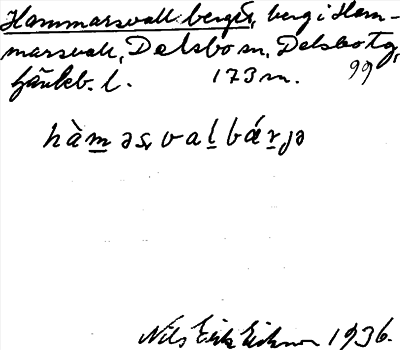 Hammarsvallberget, berg i Ham-
marsvall, Delsbo sn, Delsbo tg,
Gävleb. l. 173 m. 99
hàm̲əsval̲bár̲jə
Nils Erik Eriksson 1936.